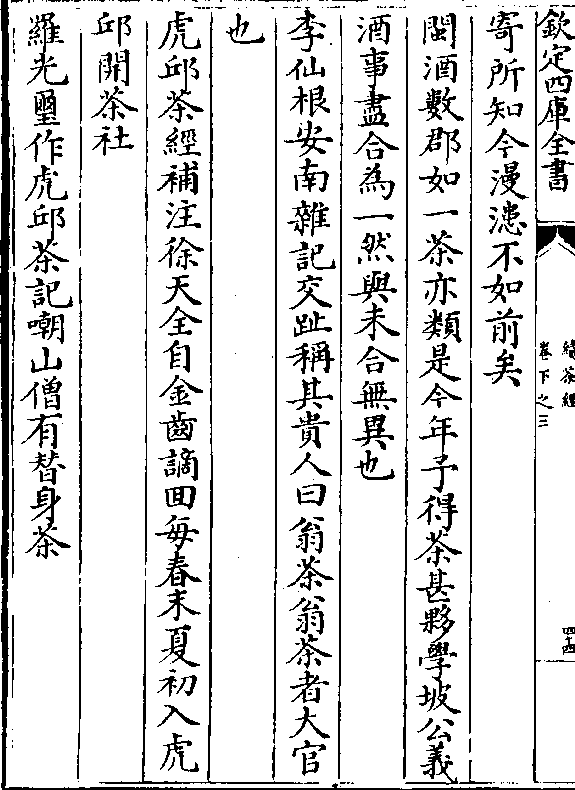 欽定四庫全書
續茶經
卷下之三
四十四
寄所知今漫漶不如前矣
閩酒數郡如一茶亦類是今年予得茶甚夥學坡公義
酒事盡合為一然與未合無異也
李仙根安南雜記交趾稱其貴人曰翁茶翁茶者大官
也
虎邱茶經補注徐天全自金齒謫回每春末夏初入虎
邱開茶社
羅光璽作虎邱茶記嘲山僧有替身茶